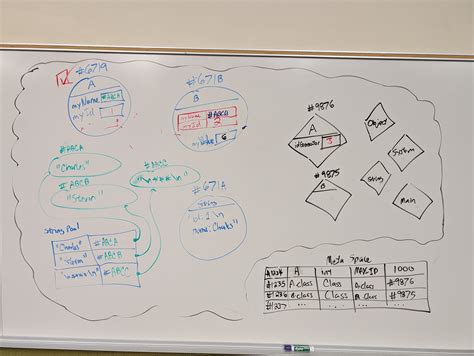 #6719
A
myName #ABCA
myId 1
#671B
B
myName #ABCB
myId 2
myValue
#ABCA
"Charles"
#ABCB
"Steven"
#ABCC
#671A
String
name: Charles
String Pool
"Charles" #ABCA
#ABCB
#ABCC
#9876
A
idGenerator 3
#9875
B
Object
System
String
Main
Meta Space
#1234 A MAX-ID 1000
#1235 A.class Class A.class #9876
#1236 B.class Class B.class #9875
#1237